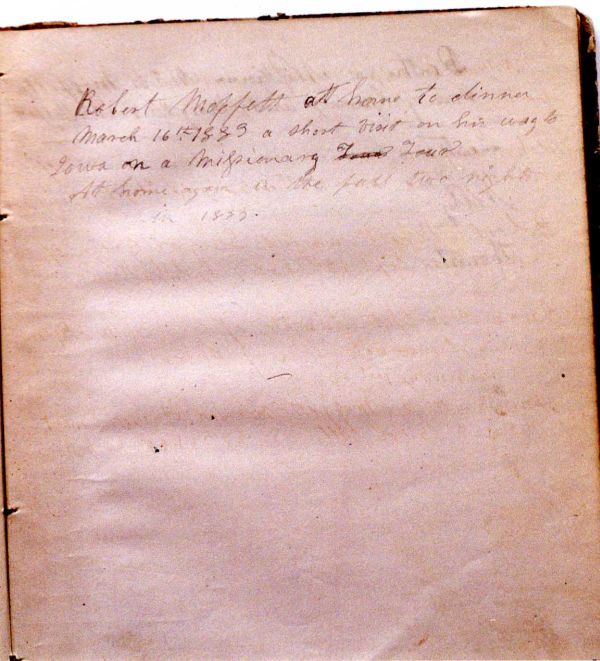 Robert Moffett at home to dinner
March 16th 1883 a short visit on his way to
Iowa on a Missionary Tour Tour
At home again in the fall two nights
in 1883.